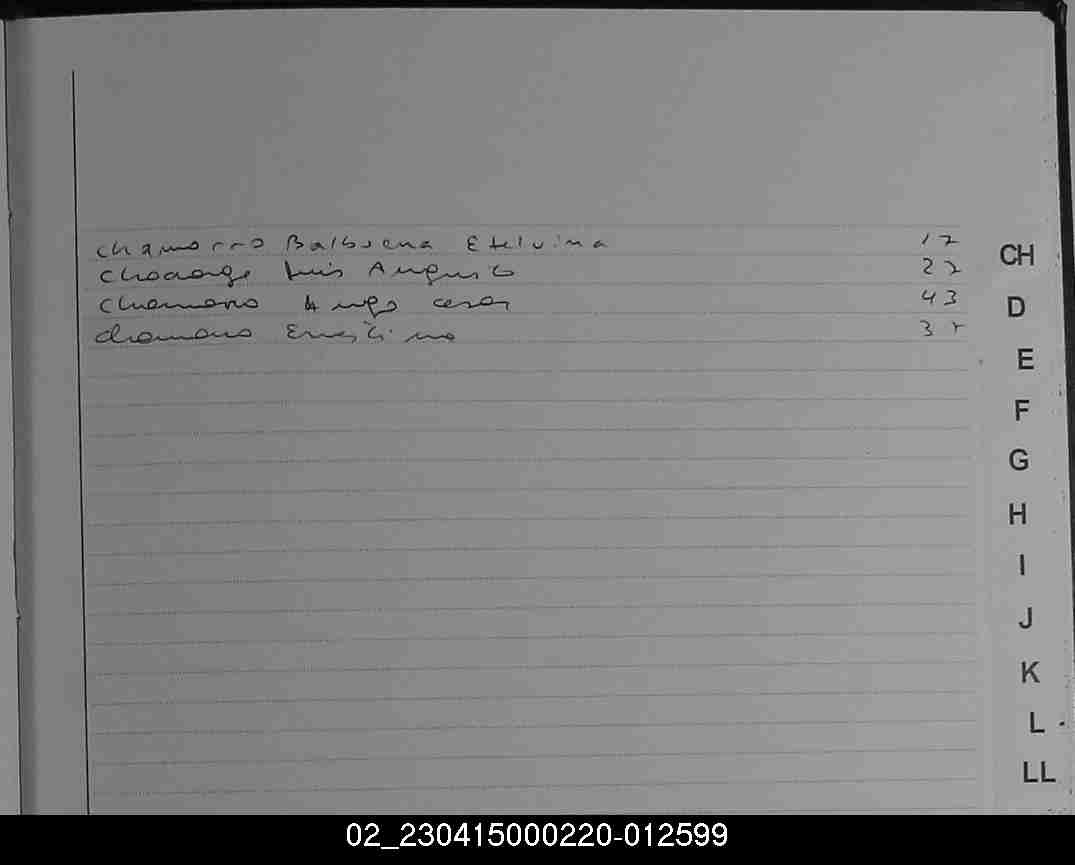 Chamorro Balbuena Etelvina 17
Luis Augusto 22
Chamorro Hugo Cesar 43
Chamorro 
CH
D
E
F
G
H
I
J
K
L
LL
02_230415000220-012599